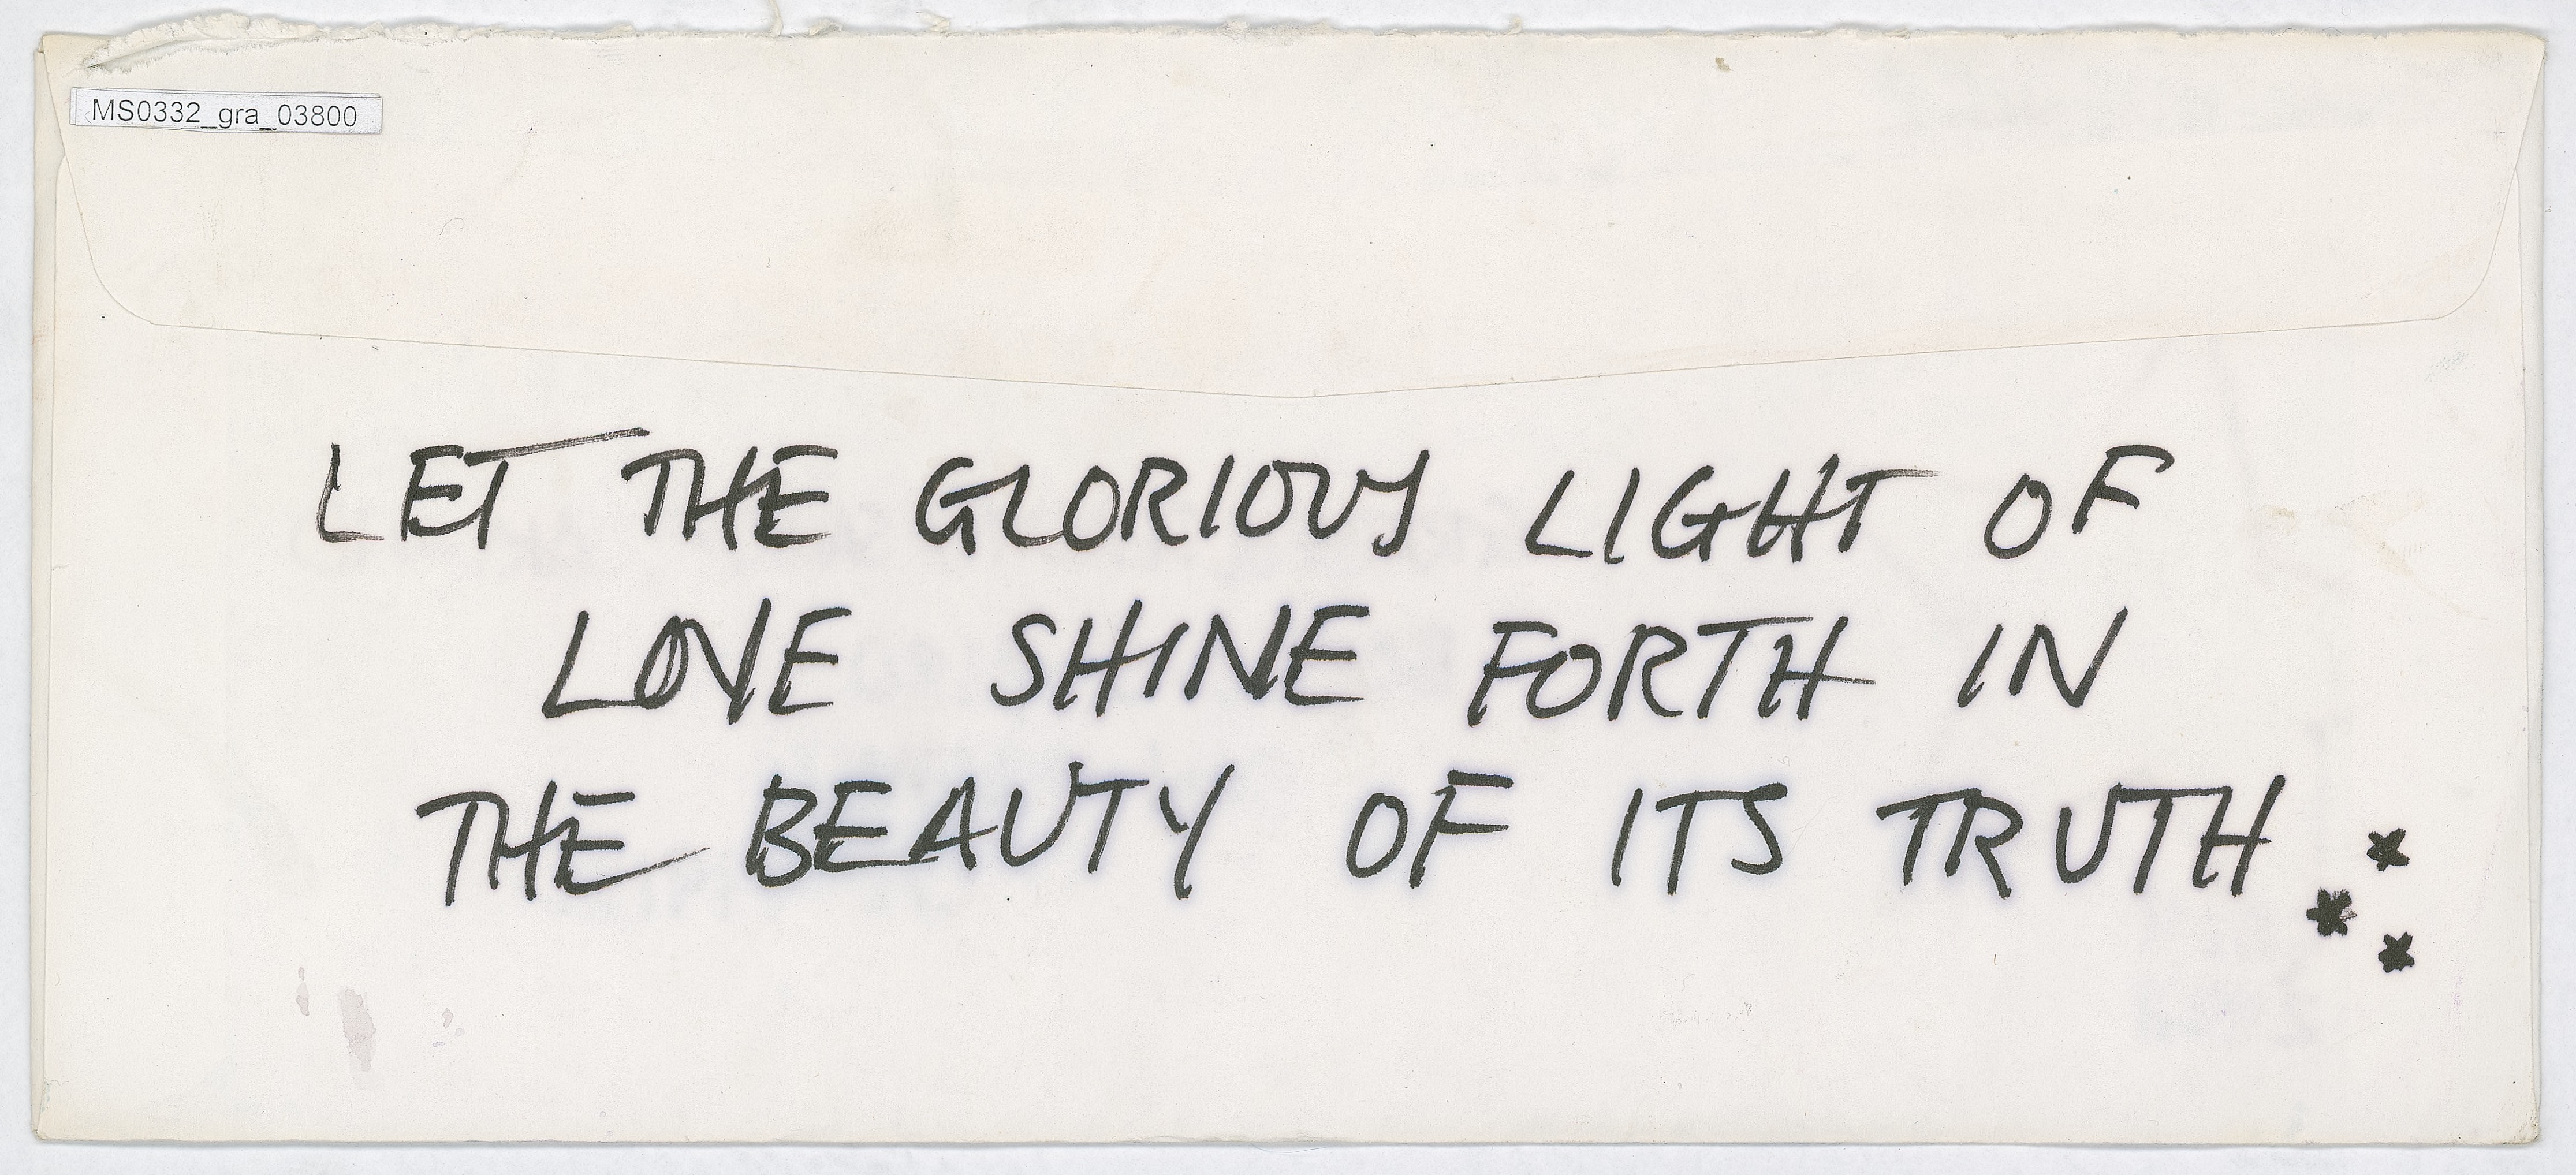 MS0332_gra_03800
LET THE GLORIOUS LIGHT OF
LOVE SHINE FORTH IN
THE BEAUTY OF ITS TRUTH